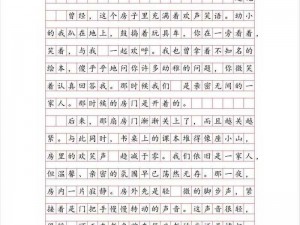 曾经，这个房子里充满着欢声笑语，幼小
的我趴在地上，鼓捣着玩具车，你在一旁看着
笑着，与我一起欢呼。我也曾拿着不知名的
绘本，傻乎乎地问你许多幼稚的问题，你微笑
着认真回答我。那时候的我们，是亲密无间的一
家人。那时候的房门是开着的。
后来，那扇房门渐渐上了，而且越关越
紧。与此同时，书桌上的课本堆得像座小山，
房里的欢笑声趋近于零。我们依旧是一家人，
但温馨、亲密的氛围早已荡然无存。那一夜，
房内一片寂静。房外先是轻微的脚步声，紧
接着是门把手慢慢转动的声音。这声音很轻，